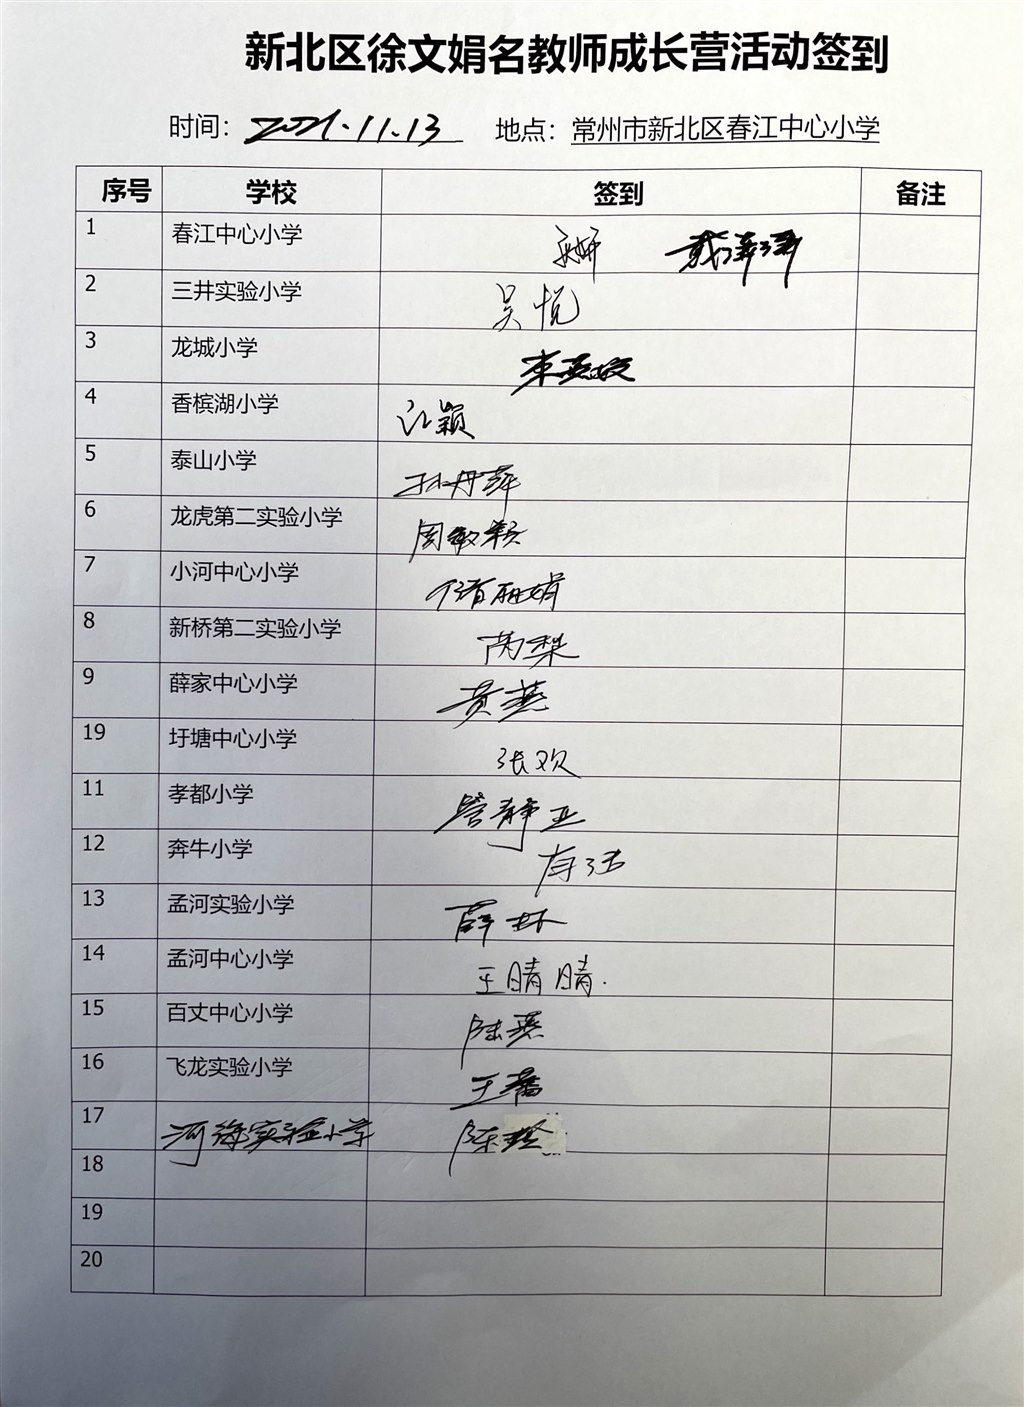 新北区徐文娟名教师成长营活动签到
时间：2021.11.13 地点：常州市新北区春江中心小学
序号 学校 签到 备注
1 春江中心小学
2 三井实验小学 吴悦
3 龙城小学
4 香槟湖小学 江颖
5 泰山小学 孙丹萍
6 龙虎第二实验小学 周敏
7 小河中心小学 娟
8 新桥第二实验小学 芮梨
9 薛家中心小学 黄燕
19 圩塘中心小学 张欢
11 孝都小学 管静亚
12 奔牛小学
13 孟河实验小学 薛
14 孟河中心小学 王晴晴.
15 百丈中心小学 陆燕
16 飞龙实验小学 王蕾
17 河海实验小学 陈玲
18
19
20